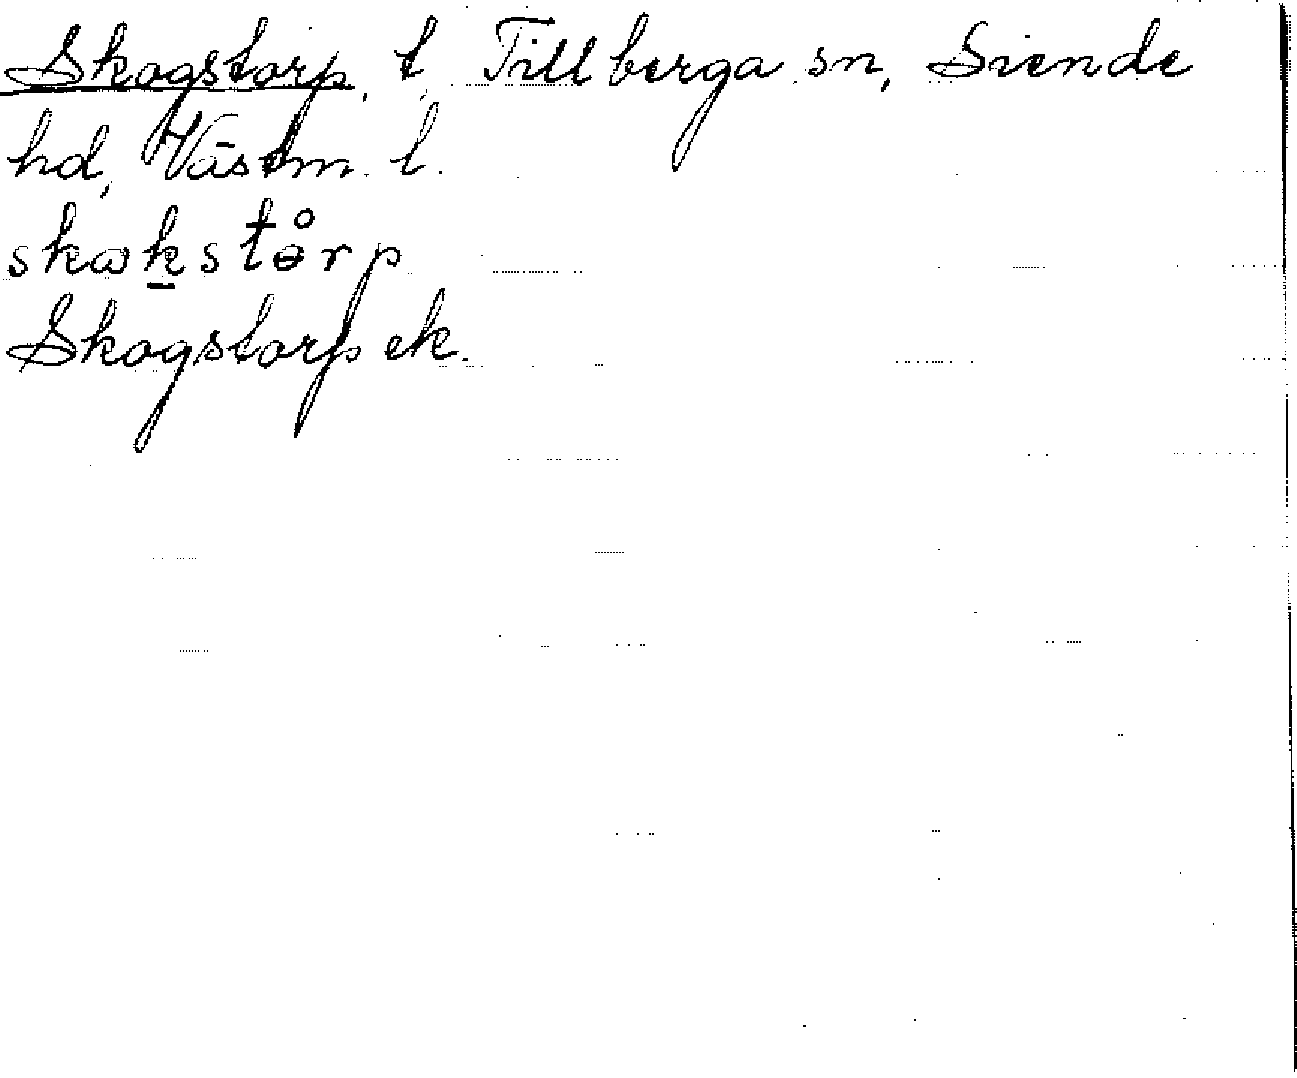 Skogstorp, t. Tillberga sn, Siende
hd, Västm. l.
skωkstə̊rp
Skogstorp ek.